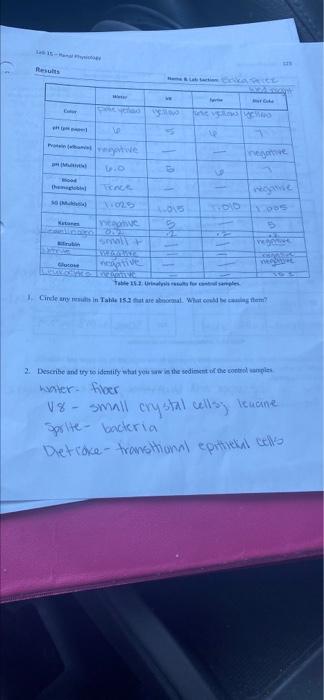 Lab 15 - Renal Physiology
Results
Name & Lab Section:
Water V8 Sprite Diet Coke
Color pale yellow yellow pale yellow yellow
pH (pH paper) 6 5 6 7
Protein (albumin) negative — — negative
pH (Multistix) 6.0 5 6 7
Blood (hemoglobin) Trace — — negative
SG (Multistix) 1.025 1.015 1.010 1.005
Ketones negative 5 — 5
Bilirubin small + — — negative
Glucose negative — — negative
Table 15.2. Urinalysis results for control samples.
1. Circle any results in Table 15.2 that are abnormal. What could be causing them?
2. Describe and try to identify what you saw in the sediment of the control samples.
Water - fiber
V8 - small crystal cells, leucine
Sprite - bacteria
Diet coke - transitional epithelial cells